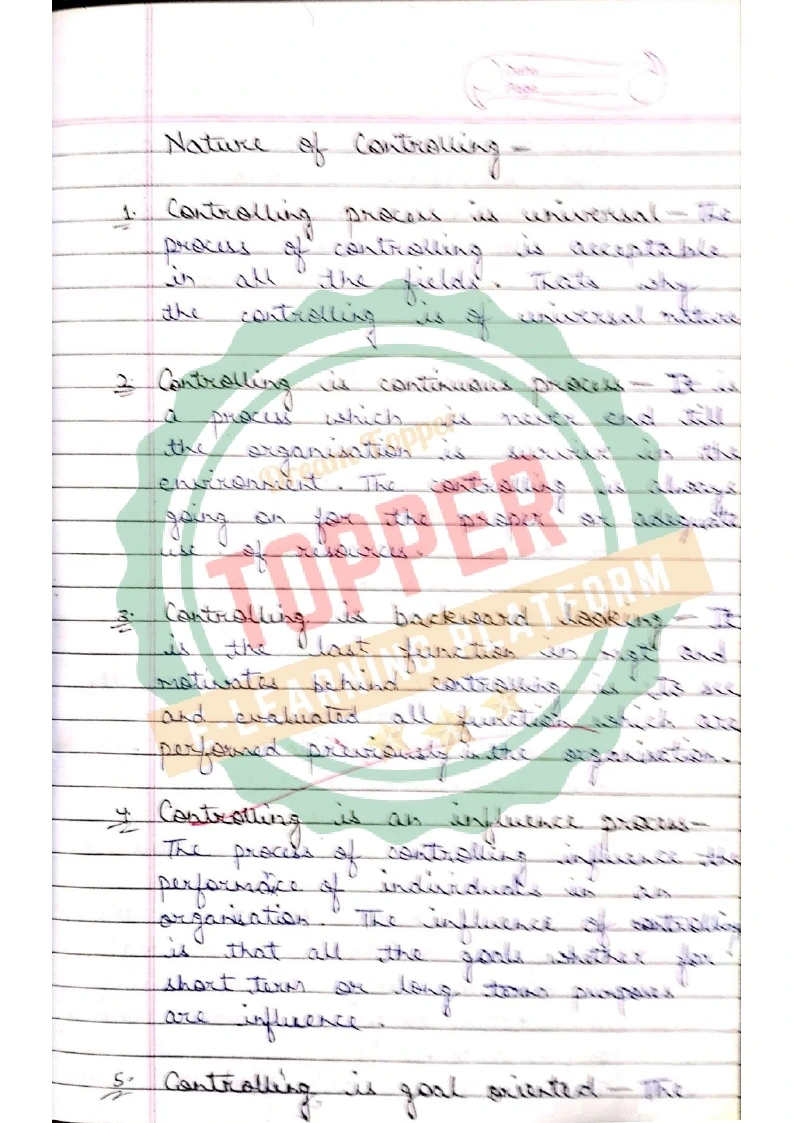 Date
Page
Nature of Controlling -
1. Controlling process is universal - The
process of controlling is acceptable
in all the fields. Thats why
the controlling is of universal nature
2. Controlling is continuous process - It is
a process which is never end till
the organisation is survive in the
environment. The controlling is always
going on for the proper or adequate
use of resources.
3. Controlling is backward looking - It
is the last function in mgt and
motivates behind controlling is to see
and evaluated all function which are
performed previously in the organisation.
4. Controlling is an influence process -
The process of controlling influence the
performance of individuals in an
organisation. The influence of controlling
is that all the goals whether for
short term or long term purposes
are influence.
5. Controlling is goal oriented - The
Dream Topper
TOPPER
E-LEARNING PLATFORM